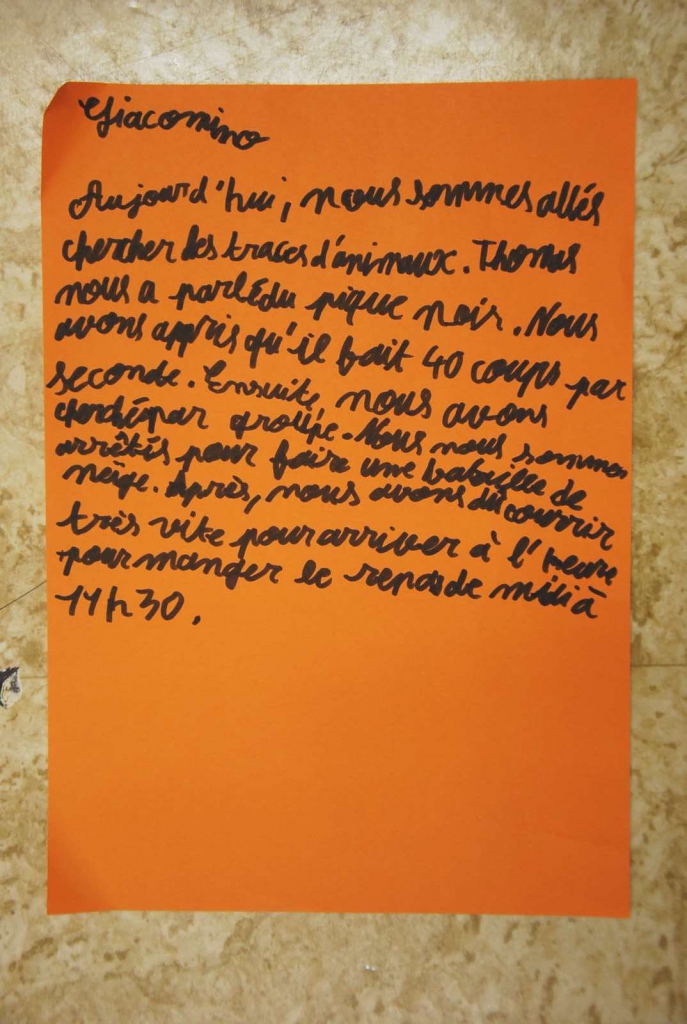 Giacomino
Aujourd'hui, nous sommes allés
chercher des traces d'animaux. Thomas
nous a parlé du pique noir. Nous
avons appris qu'il fait 40 coups par
seconde. Ensuite, nous avons
cherché par groupe. Nous nous sommes
arrêtés pour faire une bataille de
neige. Après, nous avons dû courrir
très vite pour arriver à l'heure
pour manger le repas de midi à
11h30.